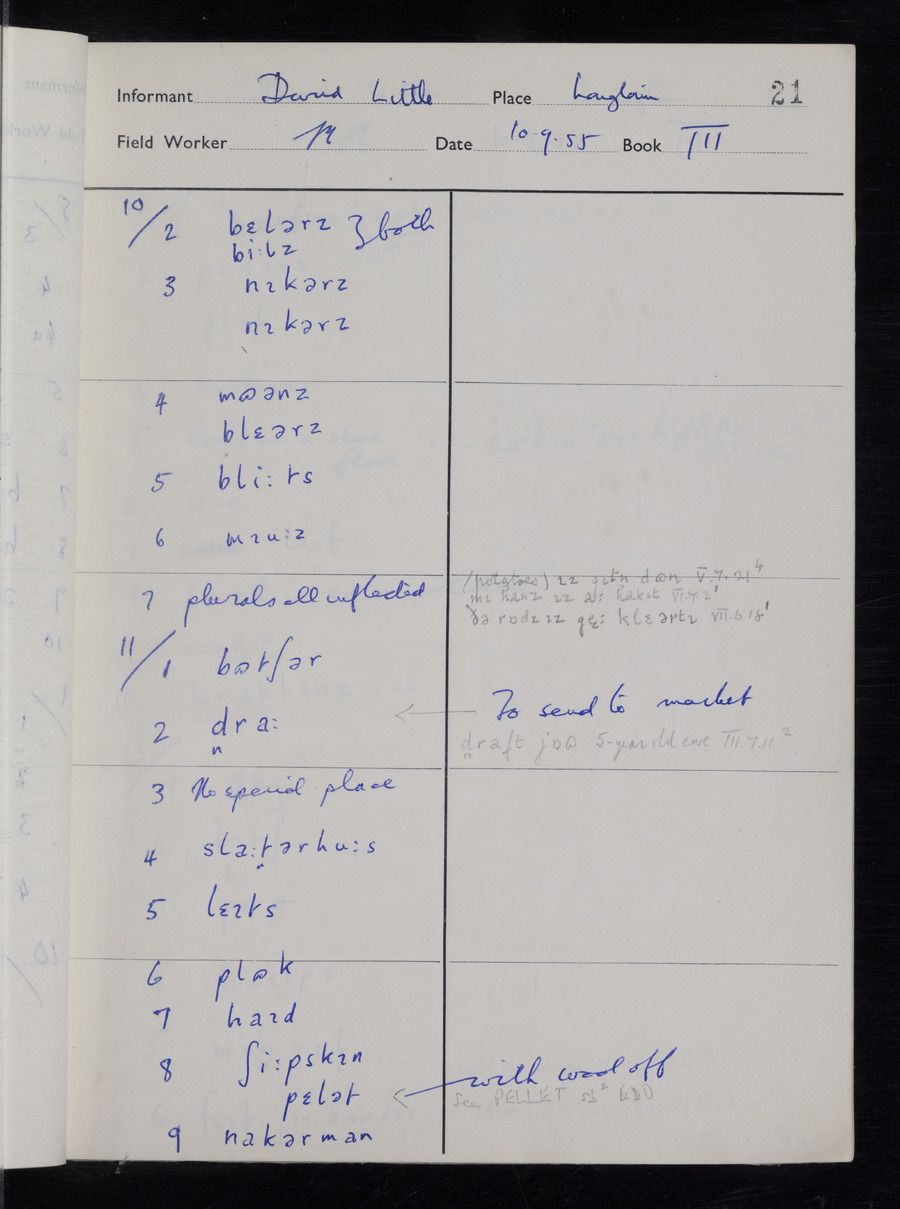 Informant David Little Place Longtown 21
Field Worker Date 10-9-55 Book III
10/2 bɛlərz } both
bi:lz
3 nɪkərz
nɪkərz
4 mɷənz
blɛərz
5 bli:ts
6 mɪu:z
7 plurals all inflected
(potatoes) ɪz gɪtn dɷn V.7.21⁴
mɪ hanz ɪz a: hakɪt VI.7.2¹
ðə rɒdz ɪz gɛ: klɛərtɪ VII.6.18¹
11/1 bɷtʃər
2 d̪ra: ← To send to market
d̪raft jɒɷ 5-year old ewe III.7.11²
3 No special place
4 sla:t̪ərhu:s
5 lɛɪts
6 plɷk
7 haɪd
8 ʃi:pskɪn
pɛlət ← with wool off
See PELLET sb² EDD
9 nakərman